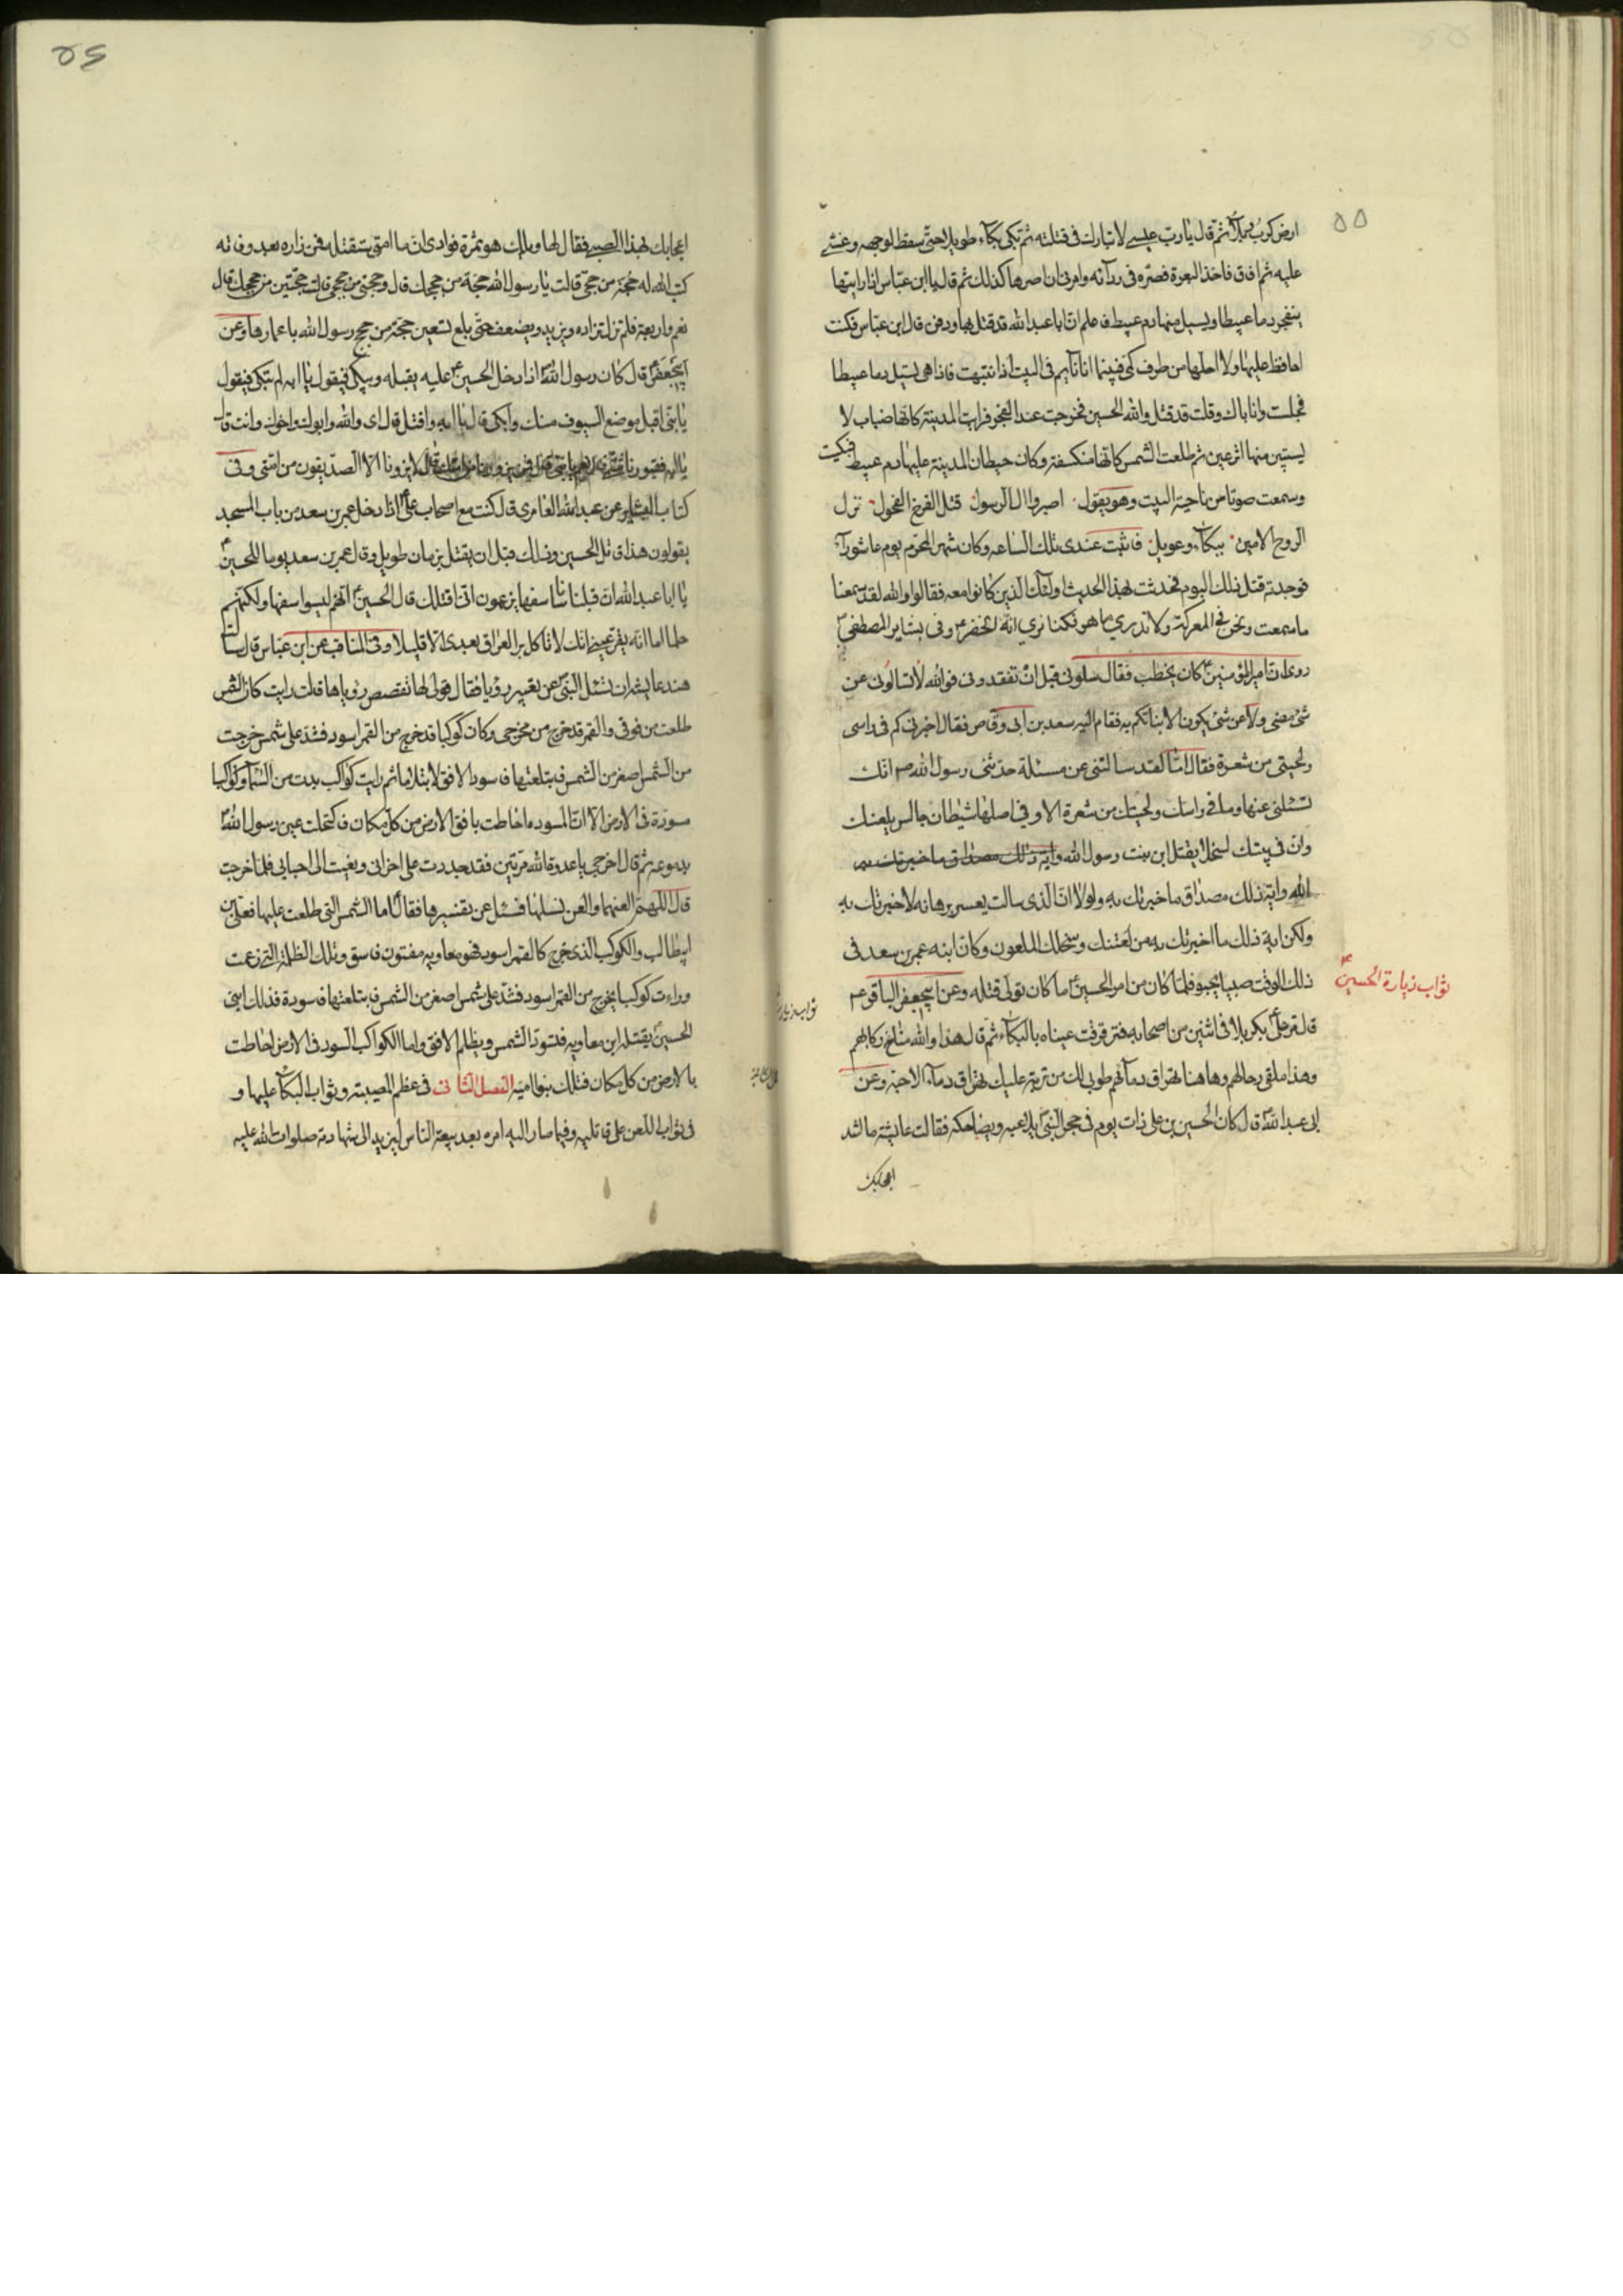 ٥٥
ارض كرب وبلآء ثم قال يا رب عيسى لا تبارك فى قتلته ثم بكى بكآء طويلا حتى سقط لوجهه وغشى
عليه ثم افاق فاخذ البعرة فصره فى ردآئه وامرنى ان اصرها كذلك ثم قال يا ابن عباس اذا رايتها
ينفجر دما عبيطا ويسيل منها دم عبيط فاعلم ان ابا عبد الله قد قتل بها ودفن قال ابن عباس فكنت
احافظ عليها ولا احلها من طرف كمى فبينما انا نآيم فى البيت اذا نتبهت فاذا هى يسيل دما عبيطا
فجلست وانا باك وقلت قد قتل والله الحسين فخرجت عند الفجر فرايت المدينة كانها ضباب لا
يستبين منها اثر عين ثم طلعت الشمس كانها منكسفة وكان حيطان المدينة عليها دم عبيط فبكيت
وسمعت صوتا من ناحية البيت وهو يقول اصبروا ال الرسول قتل الفرخ النحول نزل
الروح الامين ببكآء وعويل فاثبت عندى تلك الساعه وكان شهر المحرم يوم عاشورآء
فوجدته قتل ذلك اليوم فحدثت بهذا الحديث اولئك الذين كانوا معه فقالوا والله لقد سمعنا
ما سمعت ونحن فى المعركة ولا ندرى ما هو فكنا نرى انه الخضر ع وفى بشاير المصطفى
روى ان امير المؤمنين كان يخطب فقال سلونى قبل ان تفقدونى فوالله لا تسالونى عن
شئ مضى ولا عن شئ يكون الا نباتكم به فقام اليه سعد بن ابى وقاص فقال اخبرنى كم فى راسى
ولحيتى من شعرة فقال اما لقد سالتنى عن مسئلة حدثنى رسول الله ص انك
تسئلنى عنها وما فى راسك ولحيتك من شعرة الا وفى اصلها شيطان جالس يلعنك
وان فى بيتك لسخلا يقتل ابن بنت رسول الله واية ذلك مصداق ما خبرتك به
الله واية ذلك مصداق ما خبرتك به ولولا ان الذى سالت يعسر برهانه لاخبرتك به
ولكن اية ذلك ما اخبرتك به من لعنتك وسخلك الملعون وكان ابنه عمر بن سعد فى
ذلك الوقت صبيا يحبو فلما كان من امر الحسين ما كان تولى قتله وعن ابيجعفر الباقر ع
ثواب زيارة الحسين ع
قال مر على بكربلا فى اثنين من اصحابه فترقرقت عيناه بالبكآء ثم قال هذا والله مناخ ركابهم
وهذا ملقى رحالهم وها هنا تهراق دمآئهم طوبى لك من تربة عليك تهراق دمآء الاحبة وعن
ابى عبد الله قال كان الحسين بن على ذات يوم فى حجر النبى يلاعبه ويضاحكه فقالت عايشة ما اشد
اعجابك
٥٦
اعجابك بهذا الصبى فقال لها ويلك هو ثمرة فوادى ان ما امتى ستقتله فمن زاره بعد وفاته
كتب الله له حجة من حجى قالت يا رسول الله حجة من حججك قال وحجتى من حجى قالت حجتين من حججك قال
نعم واربعة فلم تزل تزاده ويزيد ويضعف حتى بلغ تسعين حجة من حج رسول الله باعمارها وعن
ابيجعفر قال كان رسول الله اذا دخل الحسين عليه يقبله ويبكى فيقول يا ابه لم تبكى فيقول
يا بنى اقبل موضع السيوف منك وابكى قال يا ابه واقتل قال اى والله وابوك واخوك وانت قال
يا ابه فقبورنا شتى قال نعم يا بنى قال فمن يزورنا من امتك قال لا يزورنا الا الصديقون من امتى وفى
كتاب البشاير عن عبد الله العامرى قال كنت مع اصحاب على اذا دخل عمر بن سعد من باب المسجد
يقولون هذا قاتل الحسين وذلك قبل ان يقتل بزمان طويل وقال عمر بن سعد يوما للحسين ع
يا ابا عبد الله ان قبلنا ناسا سفها يزعمون انى اقتلك قال الحسين انهم ليسوا سفها ولكنهم
حلما اما انه يقر عينى انك لا تاكل بر العراق بعدى الا قليلا وفى المناقب عن ابن عباس قال سالت
هند عايشة ان تسئل النبى عن تعبير رويا فقال قولى لها تقصص روياها قالت رايت كان الشمس
طلعت من فوقى والقمر قد خرج من مخرجى وكان كوكبا قد خرج من القمر اسود فشد على شمس خرجت
من الشمس اصغر من الشمس فابتلعتها فاسود الافق لابتلاعها ثم رايت كواكب بدت من السمآء وكواكبا
مسودة فى الارض الا ان المسوده احاطت بافق الارض من كل مكان فاكتحلت عين رسول الله
بدموعه ثم قال اخرجى يا عدوة الله مرتين فقد جددت على احزانى ونعيت الى احبابى فلما خرجت
قال اللهم العنها والعن نسلها فسئل عن تفسيرها فقال اما الشمس التى طلعت عليها فعلى بن
ابيطالب والكوكب الذى خرج كالقمر اسود فهو معاويه مفتون فاسق وتلك الظلمة التى زعمت
وراءت كوكبا يخرج من القمر اسود فشد على شمس اصغر من الشمس فابتلعتها فاسودة فذلك ابنى
الحسين يقتله ابن معاويه فتسود الشمس ويظلم الافق واما الكواكب السود فى الارض احاطت
بالارض من كل مكان فتلك بنوا اميه الفصل الثانى فى عظم المصيبة وثواب البكآء عليها و
فى ثواب اللعن على قاتليه وفيما صار اليه امره بعد بيعة الناس ليزيد الى شهادته صلوات الله عليه